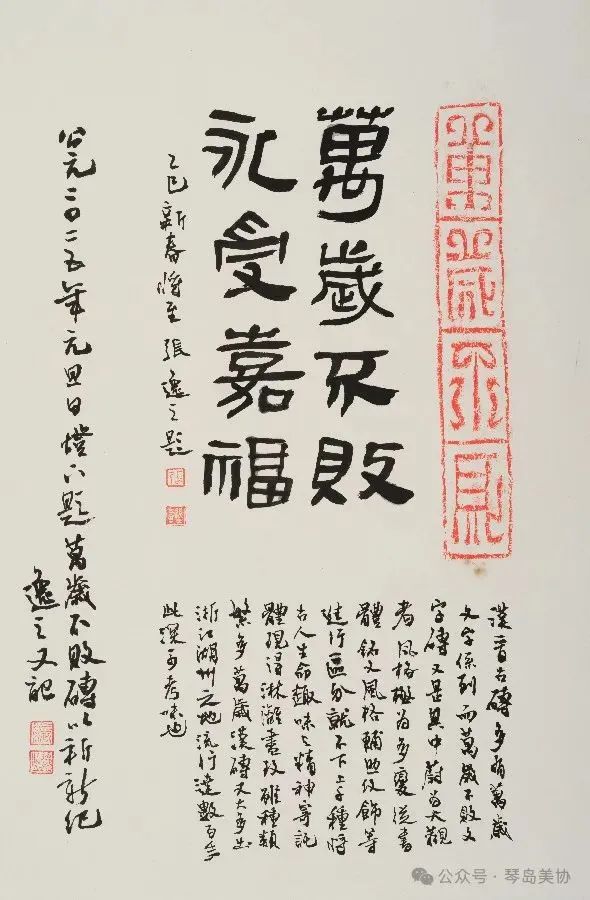 萬歲不敗
萬歲不敗
永受嘉福
乙巳新春將至張逸之題
漢晉古磚多有萬歲
文字係列而萬歲不敗文
字磚又是其中蔚為大觀
者風格極為多變從書
體銘文風格輔助紋飾等
進行區分就不下上千種將
古人生命趣味之精神寄託
體現得淋灕盡致雖種類
繁多萬歲漢磚又大多出
浙江湖州之地流行達數百年
此深可考味也
公元二〇二五年元旦日燈下題萬歲不敗磚以新新紀
逸之又記
公众号·琴岛美协